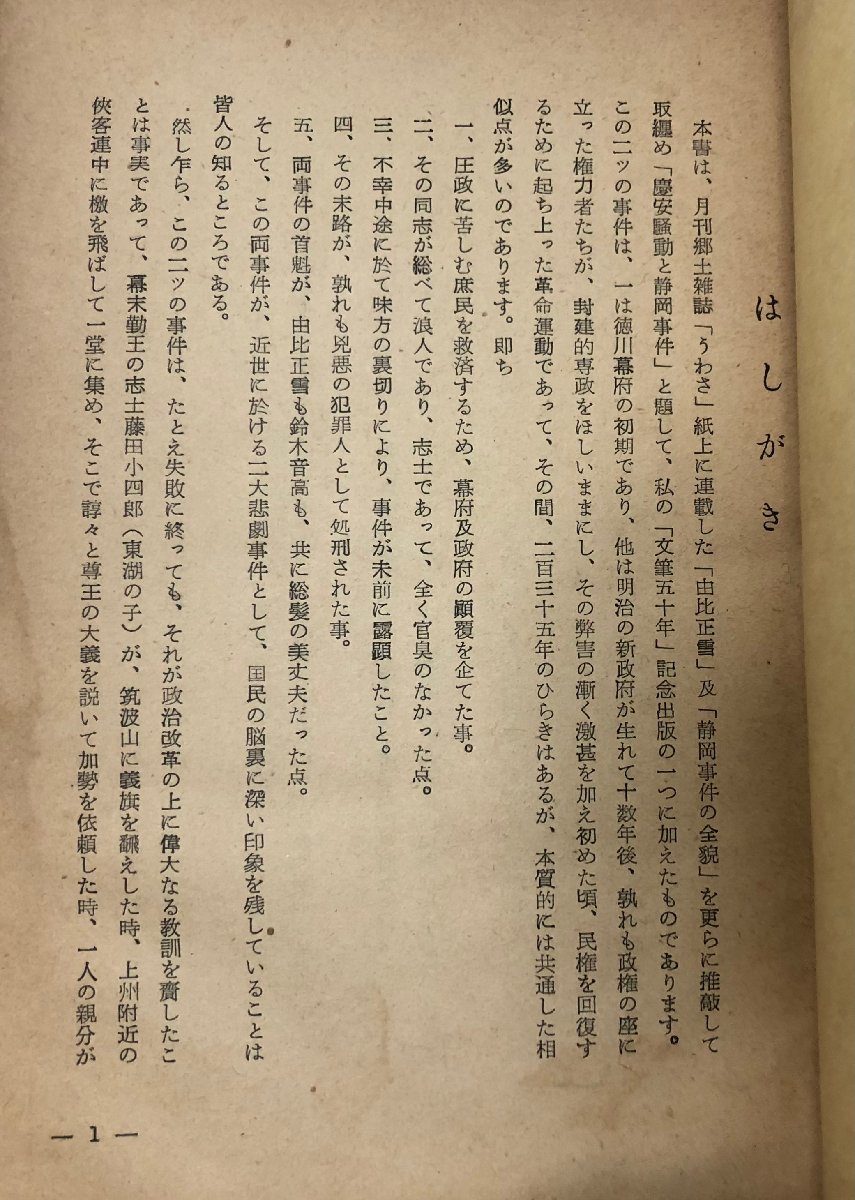 はしがき
本書は、月刊郷土雑誌「うわさ」紙上に連載した「由比正雪」及「静岡事件の全貌」を更らに推敲して
取纒め「慶安騒動と静岡事件」と題して、私の「文筆五十年」記念出版の一つに加えたものであります。
この二ッの事件は、一は徳川幕府の初期であり、他は明治の新政府が生れて十数年後、孰れも政権の座に
立った権力者たちが、封建的専政をほしいままにし、その弊害の漸く激甚を加え初めた頃、民権を回復す
るために起ち上った革命運動であって、その間、二百三十五年のひらきはあるが、本質的には共通した相
似点が多いのであります。即ち
一、圧政に苦しむ庶民を救済するため、幕府及政府の顚覆を企てた事。
二、その同志が総べて浪人であり、志士であって、全く官臭のなかった点。
三、不幸中途に於て味方の裏切りにより、事件が未前に露顕したこと。
四、その末路が、孰れも兇悪の犯罪人として処刑された事。
五、両事件の首魁が、由比正雪も鈴木音高も、共に総髪の美丈夫だった点。
そして、この両事件が、近世に於ける二大悲劇事件として、国民の脳裏に深い印象を残していることは
皆人の知るところである。
然し乍ら、この二ッの事件は、たとえ失敗に終っても、それが政治改革の上に偉大なる教訓を齎したこ
とは事実であって、幕末勤王の志士藤田小四郎（東湖の子）が、筑波山に義旗を飜えした時、上州附近の
俠客連中に檄を飛ばして一堂に集め、そこで諄々と尊王の大義を説いて加勢を依頼した時、一人の親分が
— 1 —